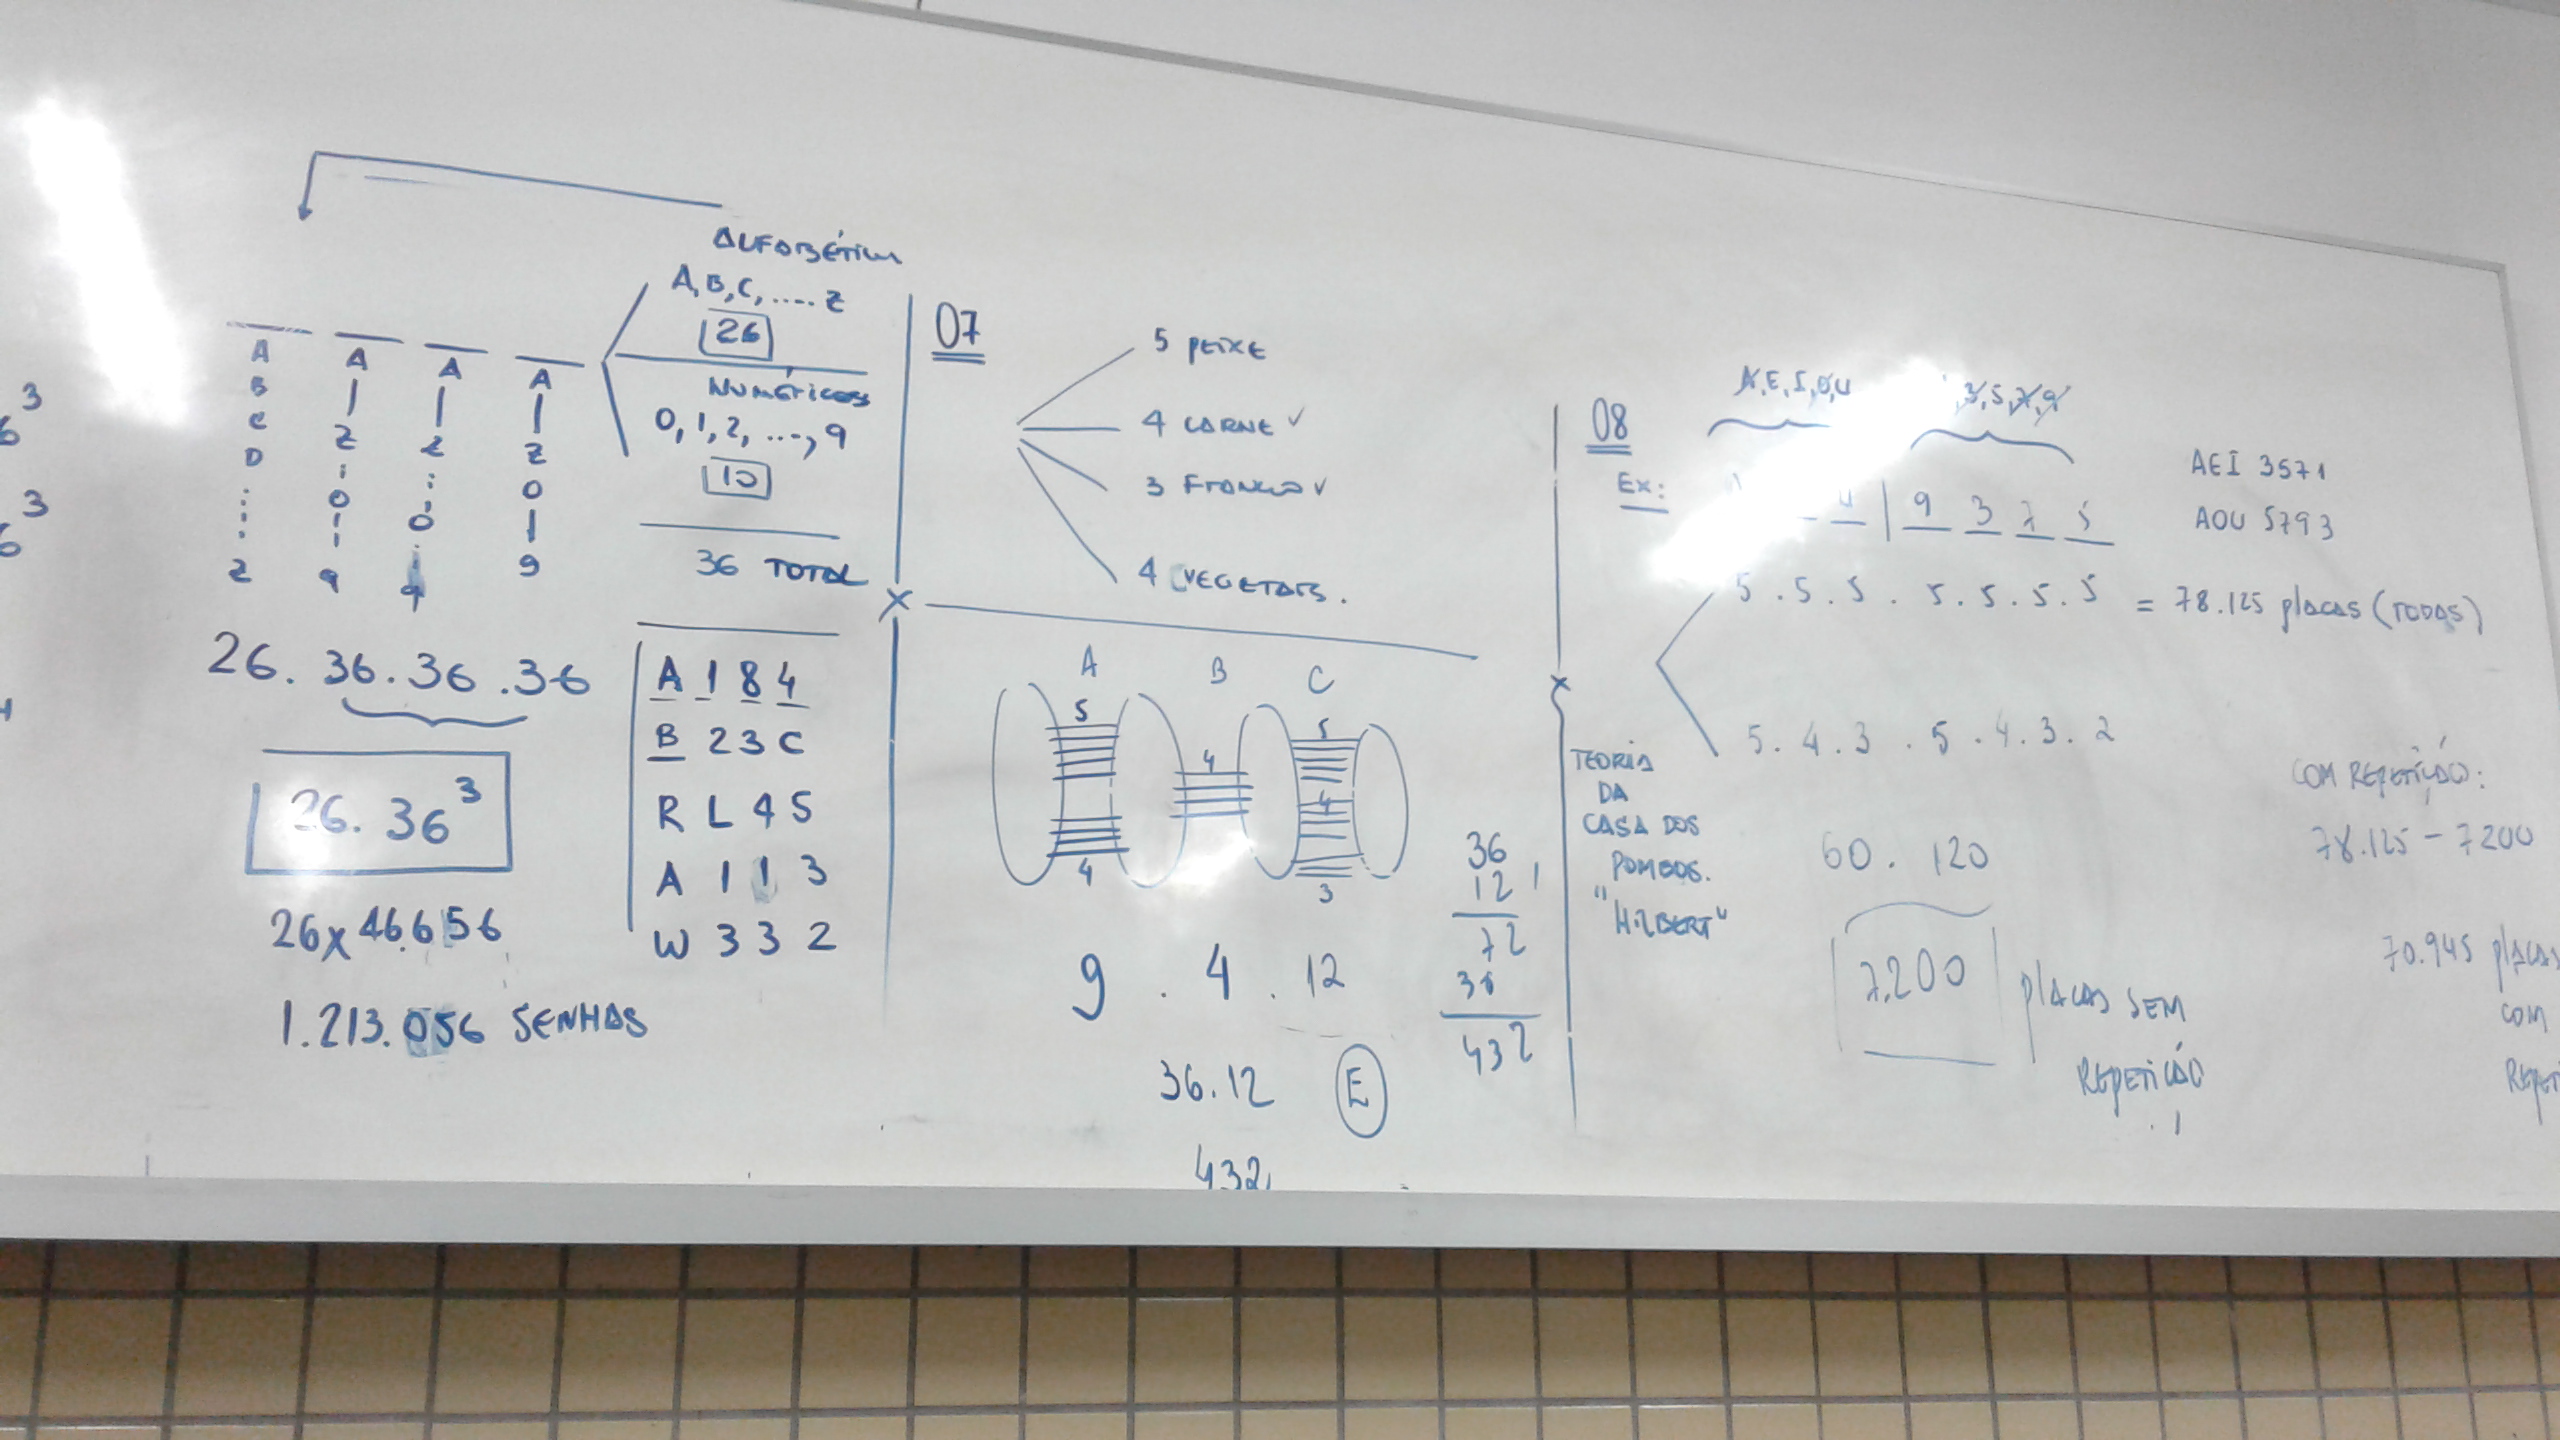 3
6
3
6
4
ALFABÉTICOS
A, B, C, .... Z
26
NUMÉRICOS
0, 1, 2, ..., 9
10
36 TOTAL
A A A A
B
C
D Z Z Z
0 0 0
Z 9 9 9
26 . 36 . 36 . 36
26 . 36³
26 x 46.656
1.213.056 SENHAS
A 1 8 4
B 2 3 C
R L 4 5
A 1 1 3
W 3 3 2
07
5 PEIXE
4 CARNE ✓
3 FRANGO ✓
4 VEGETAIS.
A B C
5 4 5
4
4 3
9 . 4 . 12
36 . 12 E
432
36
12
72
36
432
08
A, E, I, O, U , 3, 5, 7, 9
Ex: U | 9 3 7 5
AEI 3571
AOU 5793
5 . 5 . 5 . 5 . 5 . 5 . 5 = 78.125 placas (TODAS)
5 . 4 . 3 . 5 . 4 . 3 . 2
60 . 120
7.200 placas SEM
REPETIÇÃO
TEORIA
DA
CASA DOS
POMBOS.
"HILBERT"
COM REPETIÇÃO:
78.125 - 7200
70.945 placas
COM
REPETI